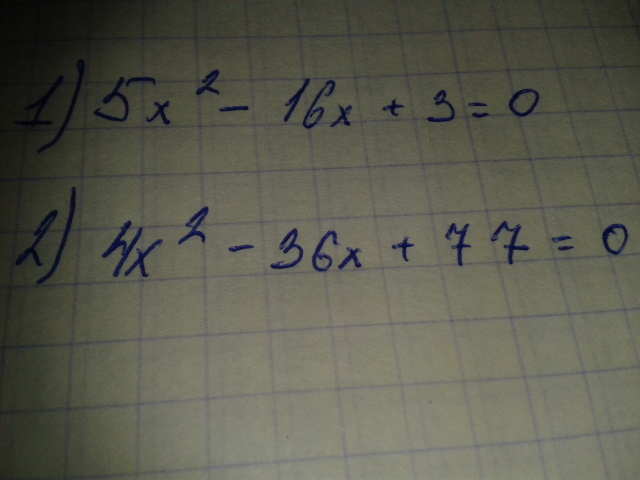 1) 5x² - 16x + 3 = 0
2) 4x² - 36x + 77 = 0